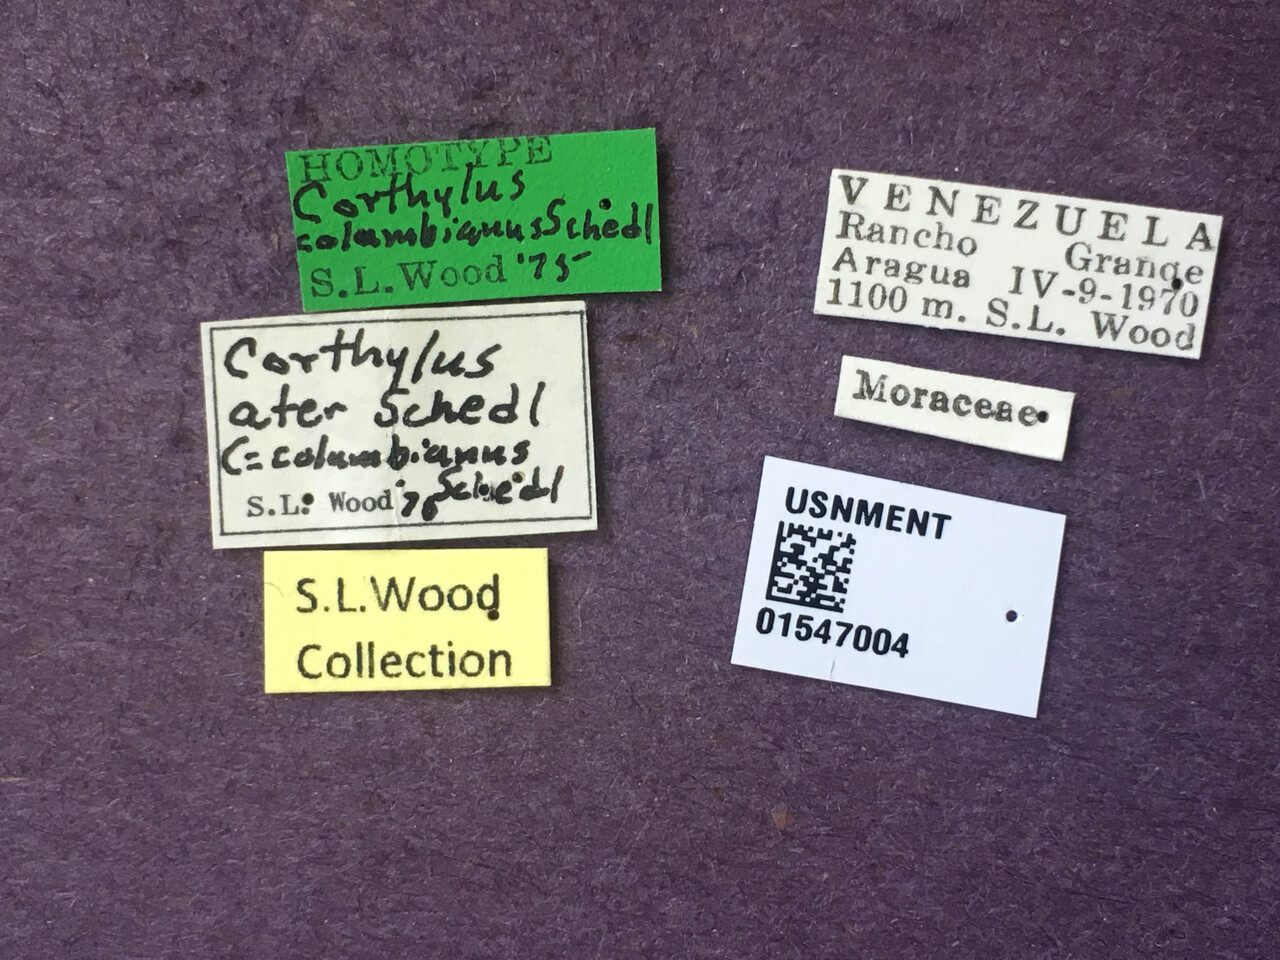 HOMOTYPE
Corthylus
columbianus Schedl
S.L.Wood '75
Corthylus
ater Schedl
(= columbianus
Schedl
S.L. Wood '76
S.L.Wood
Collection
VENEZUELA
Rancho Grande
Aragua IV-9-1970
1100 m. S.L. Wood
Moraceae
USNMENT
01547004